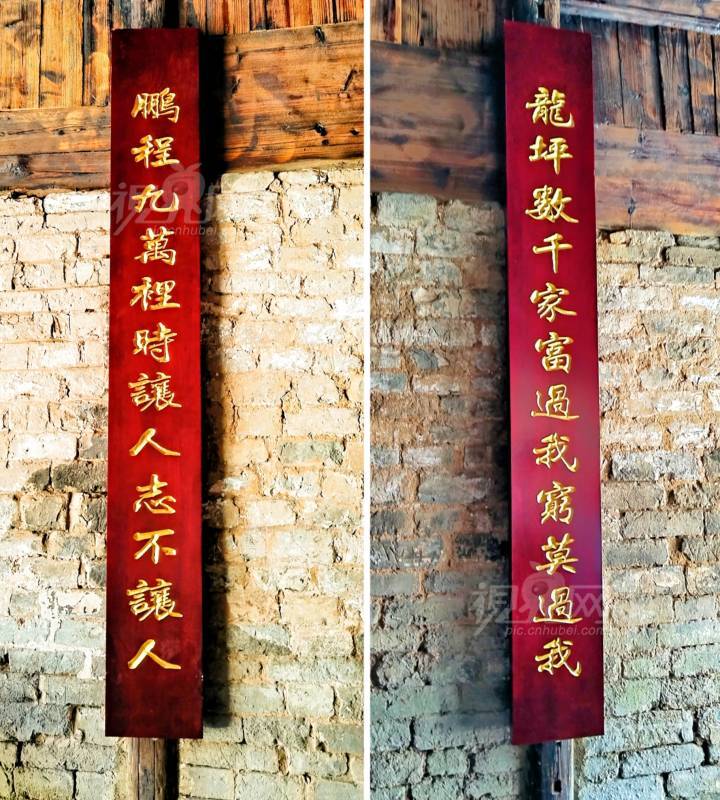 龍坪数千家富過我窮莫過我
鵬程九萬裡時讓人志不讓人
視界网
pic.cnhubei.com